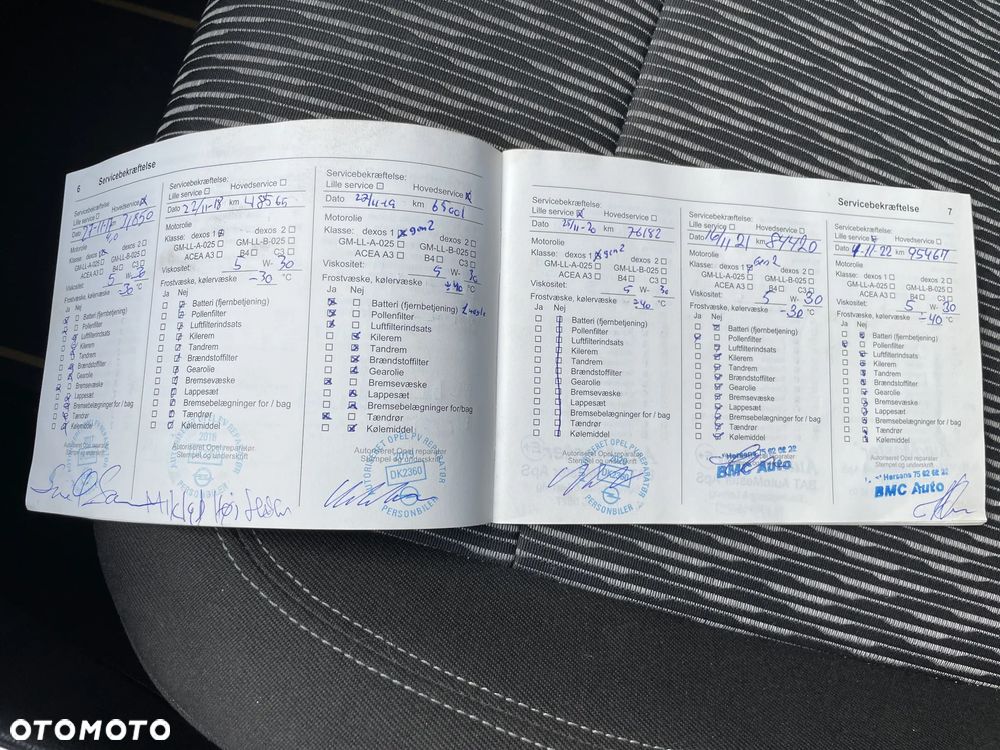 6 Servicebekræftelse
Servicebekræftelse:
Lille service Hovedservice
Dato km 31850
Motorolie
Klasse: dexos 1 dexos 2
GM-LL-A-025 GM-LL-B-025
ACEA A3 B4 C3
Viskositet: 5 W- 30
Frostvæske, kølervæske -30 °C
Ja Nej
Batteri (fjernbetjening)
Pollenfilter
Luftfilterindsats
Kilerem
Tandrem
Brændstoffilter
Gearolie
Bremsevæske
Lappesæt
Bremsebelægninger for / bag
Tændrør
Kølemiddel
Autoriseret Opel reparatør
Stempel og underskrift
Servicebekræftelse:
Lille service Hovedservice
Dato 22/11-18 km 48565
Motorolie
Klasse: dexos 1 dexos 2
GM-LL-A-025 GM-LL-B-025
ACEA A3 B4 C3
Viskositet: 5 W- 30
Frostvæske, kølervæske -30 °C
Ja Nej
Batteri (fjernbetjening)
Pollenfilter
Luftfilterindsats
Kilerem
Tandrem
Brændstoffilter
Gearolie
Bremsevæske
Lappesæt
Bremsebelægninger for / bag
Tændrør
Kølemiddel
Autoriseret Opel reparatør
Stempel og underskrift
2018
Servicebekræftelse:
Lille service Hovedservice
Dato 22/11-19 km 65001
Motorolie
Klasse: dexos 1 gen2 dexos 2
GM-LL-A-025 GM-LL-B-025
ACEA A3 B4 C3
Viskositet: 5 W- 30
Frostvæske, kølervæske ÷40 °C
Ja Nej
Batteri (fjernbetjening)
Pollenfilter
Luftfilterindsats
Kilerem
Tandrem
Brændstoffilter
Gearolie
Bremsevæske
Lappesæt
Bremsebelægninger for / bag
Tændrør
Kølemiddel
Autoriseret Opel reparatør
Stempel og underskrift
AUTORISERET OPEL PV REPARATØR
DK2360
PERSONBILER
Servicebekræftelse 7
Servicebekræftelse:
Lille service Hovedservice
Dato 25/11-20 km 76182
Motorolie
Klasse: dexos 1 gen2 dexos 2
GM-LL-A-025 GM-LL-B-025
ACEA A3 B4 C3
Viskositet: 5 W- 30
Frostvæske, kølervæske ÷40 °C
Ja Nej
Batteri (fjernbetjening)
Pollenfilter
Luftfilterindsats
Kilerem
Tandrem
Brændstoffilter
Gearolie
Bremsevæske
Lappesæt
Bremsebelægninger for / bag
Tændrør
Kølemiddel
Autoriseret Opel reparatør
Stempel og underskrift
PERSONBILER
Servicebekræftelse:
Lille service Hovedservice
Dato km 87420
Motorolie
Klasse: dexos 1 gen2 dexos 2
GM-LL-A-025 GM-LL-B-025
ACEA A3 B4 C3
Viskositet: 5 W- 30
Frostvæske, kølervæske -30 °C
Ja Nej
Batteri (fjernbetjening)
Pollenfilter
Luftfilterindsats
Kilerem
Tandrem
Brændstoffilter
Gearolie
Bremsevæske
Lappesæt
Bremsebelægninger for / bag
Tændrør
Kølemiddel
Autoriseret Opel reparatør
Stempel og underskrift
Horsens 75 62 62 22
BMC Auto
Servicebekræftelse:
Lille service Hovedservice
Dato km 95467
Motorolie
Klasse: dexos 1 dexos 2
GM-LL-A-025 GM-LL-B-025
ACEA A3 B4 C3
Viskositet: 5 W- 30
Frostvæske, kølervæske -40 °C
Ja Nej
Batteri (fjernbetjening)
Pollenfilter
Luftfilterindsats
Kilerem
Tandrem
Brændstoffilter
Gearolie
Bremsevæske
Lappesæt
Bremsebelægninger for / bag
Tændrør
Kølemiddel
Autoriseret Opel reparatør
Stempel og underskrift
Horsens 75 62 62 22
BMC Auto
OTOMOTO